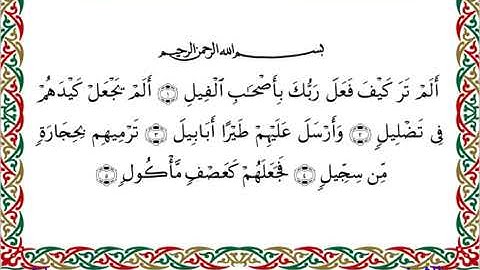 بِسْمِ اللهِ الرَّحْمٰنِ الرَّحِيمِ
أَلَمْ تَرَ كَيْفَ فَعَلَ رَبُّكَ بِأَصْحَٰبِ ٱلْفِيلِ ۝١ أَلَمْ يَجْعَلْ كَيْدَهُمْ
فِى تَضْلِيلٍ ۝٢ وَأَرْسَلَ عَلَيْهِمْ طَيْرًا أَبَابِيلَ ۝٣ تَرْمِيهِم بِحِجَارَةٍ
مِّن سِجِّيلٍ ۝٤ فَجَعَلَهُمْ كَعَصْفٍ مَّأْكُولٍۭ ۝٥